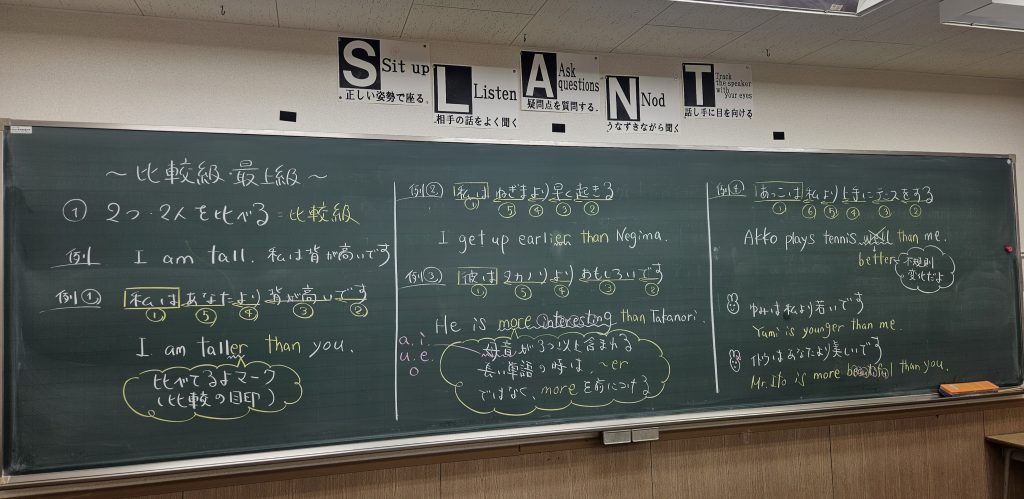 S Sit up
正しい姿勢で座る.
L Listen
相手の話をよく聞く
A Ask questions
疑問点を質問する.
N Nod
うなずきながら聞く
T Track the speaker with your eyes
話し手に目を向ける
～比較級・最上級～
① 2つ・2人を比べる:比較級
例 I am tall. 私は背が高いです
例① 私は あなたより 背が高いです
① ⑤ ④ ③ ②
I am taller than you.
比べてるよマーク
(比較の目印)
例② 私は ねぎまより早く起きる
① ⑤ ④ ③ ②
I get up earlier than Negima.
例③ 彼は タカノリより おもしろいです
① ⑤ ④ ③ ②
He is more interesting than Tatanori.
a. i.
u. e.
o
母音が3つ以上含まれる
長い単語の時は、~er
ではなく、moreを前につける
例④ あっこは 私より上手にテニスをする
① ⑥ ⑤ ④ ③ ②
Akko plays tennis well than me.
better
不規則
変化だよ
ゆみは私より若いです
Yumi is younger than me.
イトウはあなたより美しいです
Mr. Ito is more beautiful than you.